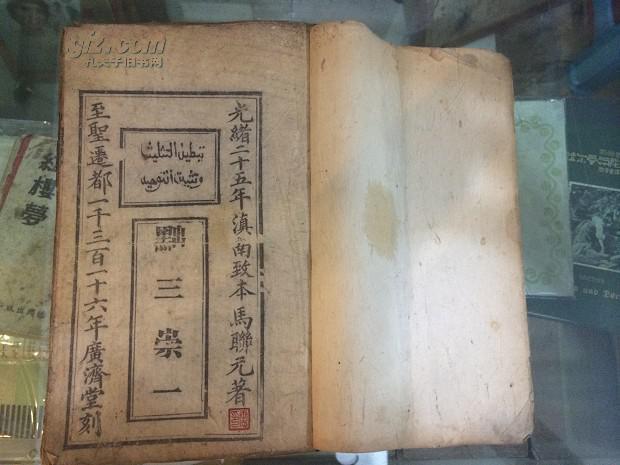 光緒二十五年滇南致本馬聯元著
تبطيل التثليث
وتثبيت التوحيد
黜三崇一
至聖遷都一千三百一十六年廣濟堂刻
孔夫子旧书网
紅樓夢